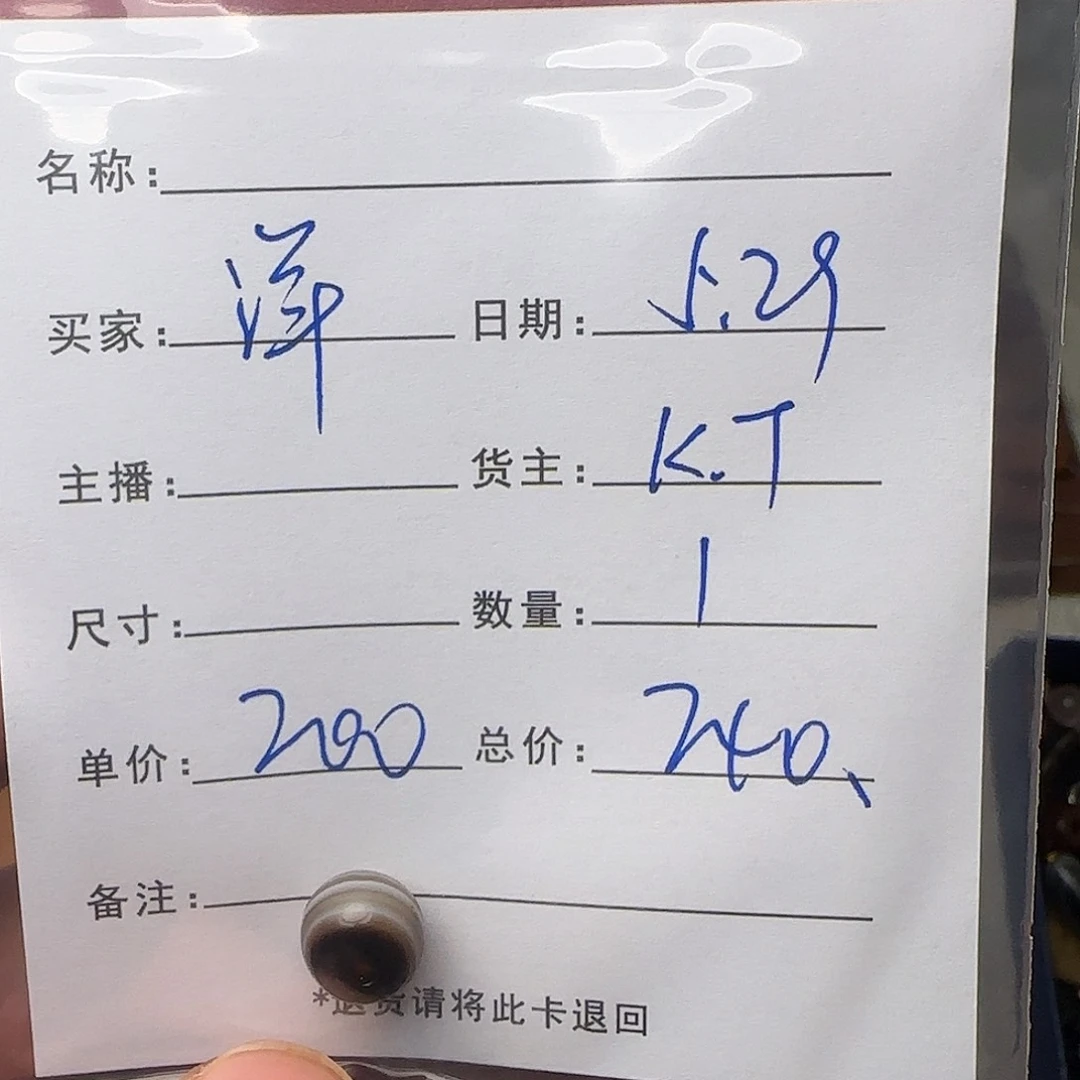 名称：
买家：洋 日期：5.29
主播： 货主：K.T
尺寸： 数量：1
单价：200 总价：240、
备注：
*退货请将此卡退回